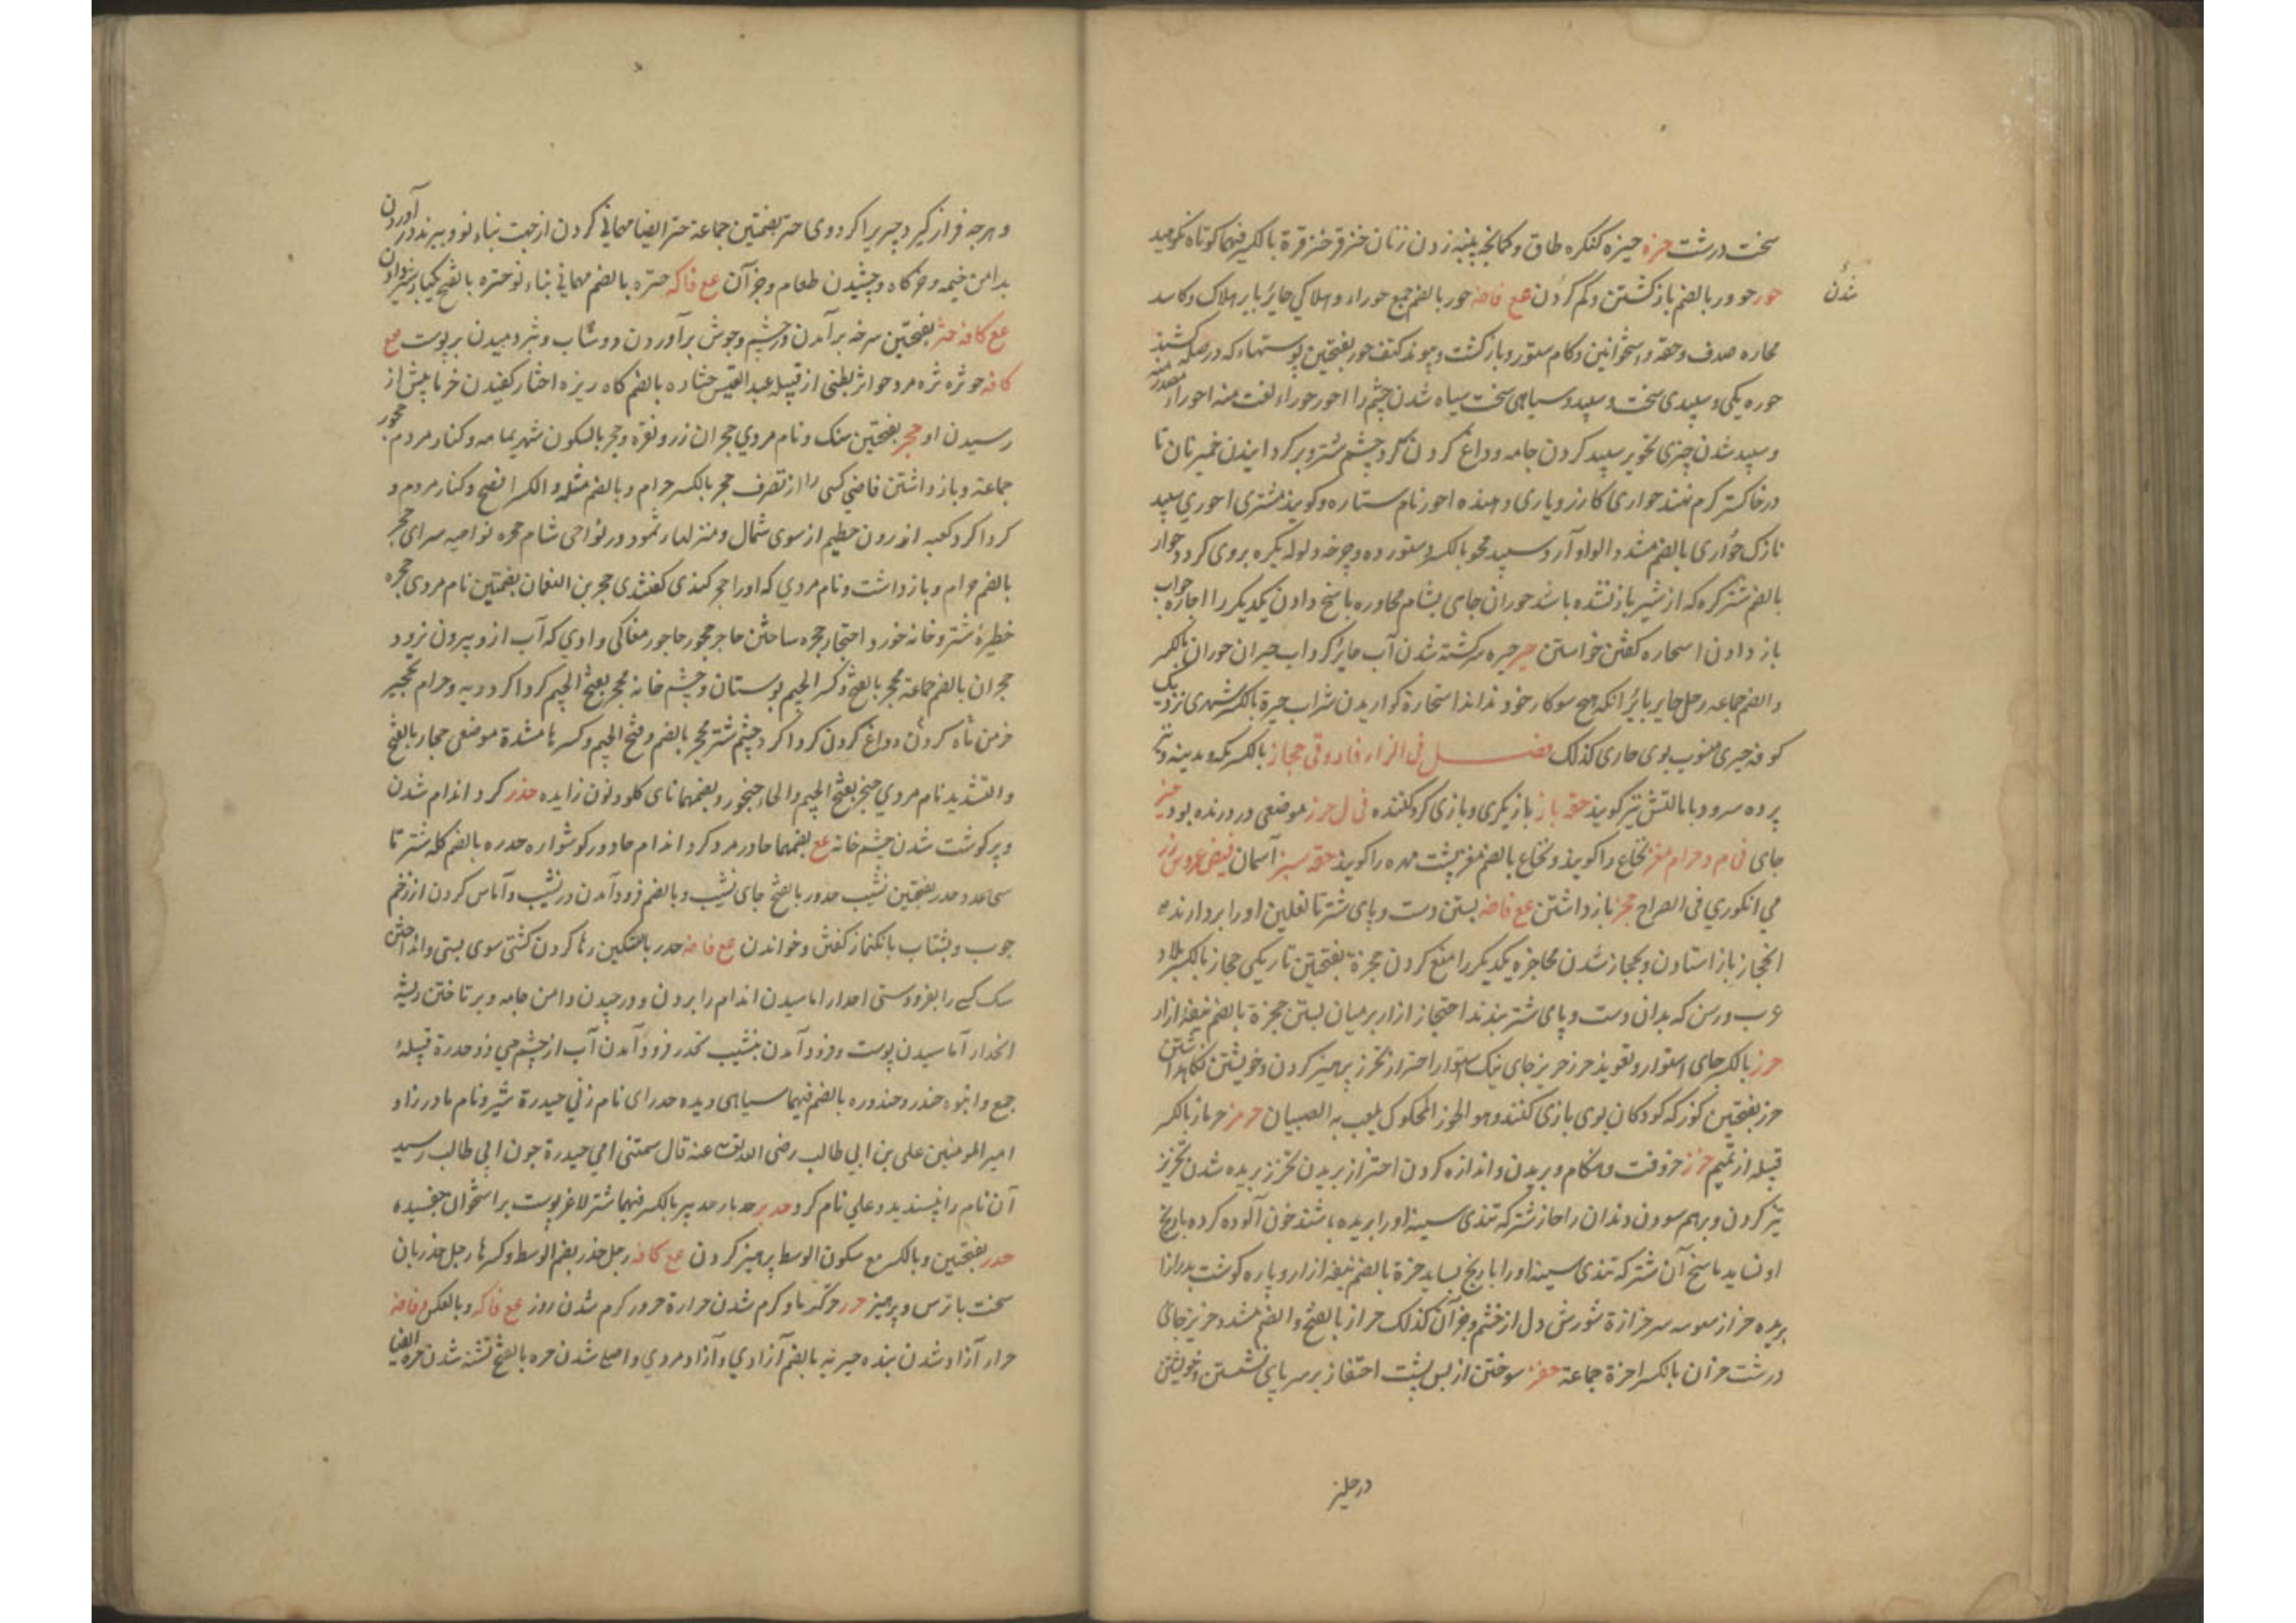 سخت درشت حزه حیزه کنکره طاق و کمانچه پنبه زدن زنان حنزقر حنزقرة بالکسر فیهما کوتاه
حور حوور بالضم باز کشتن و کم کردن مع فاضه حور بالضم جمع حوراء و هلاکی حائر بایر هلاک و کاسد
شدن
محاره صدف و حقه و استخوانین و کام ستور و باز کشت و پیوند کتف حور بفتحتین پوستهاء که در
حوره یکی و سپیدی سخت و سپید و سیاهی سخت سیاه شدن چشم را احور حوراء لغت منه احورار
و سپید شدن چیزی تحویر سپید کردن جامه و داغ کردن کرد چشم شتر و بر کردانیدن خمیر نان تا
در خاکستر کرم نهند حواری کازر و یاری دهنده احور نام ستاره و کویند مشتری احوری سپید
نازک حواری بالضم مشدد الواو آرد سپید محو بالکسر و ستور ده و چرخه دلو که بکره بروی کردد حوار
بالضم شتر کره که از شیر باز نشده باشد حوران جای بشام محاوره پاسخ دادن یکدیکر را احاره جواب
باز دادن استحاره کفتن خواستن حیر حیره سرکشته شدن آب حائر کرداب حیران حوران بالکسر
و الضم جماعه رجل حایر بائر انکه هیچ سو کار خود نداند استحارة کواریدن شراب حیرة بالکسر شهری نزدیک
کوفه حیری منسوب بوی حاری کذلک فصل فی الزاء فاروقی حجاز بالکسر مکه و مدینه و نیز
پرده سرود با مالتش نیز کویند حقه باز بازیکری و بازی کر و کننده فی ل حرز موضعی در ورنده بود
جای فی م و حرام مغز نخاع را کویند و نخاع بالضم مغز پشت مهره را کویند حقه سبز آسمان فیض عروس رز
می انکوری فی الصراح حجز باز داشتن مع فاضه بستن دست و پای شتر تا نعلین او را بردارند
انحجاز باز استادن و بحجاز شدن محاجزه یکدیکر را منع کردن حجزة بفتحتین تاریکی حجاز بالکسر بلاد
عرب و رسن که بدان دست و پای شتر بندند احتجاز ازار بر میان بستن حجزة بالضم نیفهٔ ازار
حرز بالکسر جای استوار و تعوید حرز حریز جای نیک استوار احتراز تحرز پرهیز کردن و خویشتن نکاه داشتن
حرز بفتحتین کوز که کودکان بوی بازی کنند و هو الجوز المحکوک یلعب به الصبیان حرمز حرماز بالکسر
قبیله از تمیم حزز حز وقت و هنکام و بریدن و اندازه کردن احتزاز بریدن تحزز بریده شدن تحزیز
تیز کردن و برهم سودن دندان را حاز شتر که تندی سینه او را بریده باشند خون آلوده کرده باریخ
او نساید ناسخ آن شتر که تندی سینه او را باریخ بساید حزة بالضم نیفه ازار و پاره کوشت بدرازا
بریده حزاز سبوسه سر حزازة شورش دل از خشم و جز آن کذلک حزاز بالفتح و الضم مشدد حزیز جای
درشت حزان بالکسر احزة جماعة حفز سوختن از پس پشت احتفاز بر سر پای نشستن و خویشتن
در حلیز
و هرچه فراز کیرد چیزی را کرد وی حتر بضمتین جماعة حتر ایضا مهمانی کردن از جهت بناء نو و بر در آوردن
بدامن خیمه و خرکاه و چشیدن طعام و جز آن مع فاکه حتره بالضم مهمانی بناء نو حتره بالفتح یکبار شیر دادن
مع کافه حثر بفتحتین سرخه برآمدن در چشم و جوش برآوردن دوشاب و بثر دمیدن بر پوست مع
کافه حوثره نره مرد حواثر بطنی از قبیله عبد القیس حثاره بالضم کاه ریزه احثار کفیدن خرما پیش از
رسیدن او حجر بفتحتین سنک و نام مردی حجران زر و نقره و حجر بالسکون شهر یمامه و کنار مردم حجور
جماعة و باز داشتن قاضی کسی را از تصرف حجر بالکسر حرام و بالضم مثله و الکسر افصح و کنار مردم و
کرداکرد کعبه اندرون حطیم از سوی شمال و منزلهاء ثمود در نواحی شام حجره نواحیه سرای حجر
بالضم حرام و باز داشت و نام مردی که او را حجر کندی کفتندی حجر بن النعمان بضمتین نام مردی حجره
حظیرهٔ شتر و خانه خورد احتجار حجره ساختن حاجر محجور حاجور مغاکی وادی که آب از و بیرون نرود
حجران بالضم جماعة محجر بالفتح و کسر الجیم بوستان و چشم خانه محجر بفتح الجیم کرداکرد دیه و حرام تحجیر
خرمن ناه کردن و داغ کردن کرداکرد چشم شتر محجر بالضم و فتح الجیم و کسرها مشددة موضعی حجار بالفتح
و التشدید نام مردی حنجر بفتح الجیم و الحاء حنجور و بضمهما نای کلو و نون زایده حدر کرد اندام شدن
و پر کوشت شدن چشم خانه مع بضمهما حادر مرد کرد اندام حادور کوشواره حدره بالضم کله شتر تا
سی عدد حدر بفتحتین نشیب حدور بالفتح جای نشیب و بالضم فرود آمدن در نشیب و آماس کردن از زخم
چوب و بشتاب بانک نماز کفتن و خواندن مع فاضه حدر بالتسکین رها کردن کشتی سوی پستی و انداختن
سک کسی را بفرودستی احدار اماسیدن اندام را بردن و ورچیدن دامن جامه و بر تافتن ریشهٔ
انحدار آماسیدن پوست و فرود آمدن بنشیب تحدر فرود آمدن آب از چشم حی ذو حدرة قبیلهٔ
جمع و انبوه حندر و حندوره بالضم فیهما سیاهی دیده حدرای نام زنی حیدرة شیر و نام مادرزاد
امیر المومنین علی بن ابی طالب رضی الله تعالی عنه قال سمتنی امی حیدرة چون ابی طالب رسید
آن نام را پسندید و علی نام کرد حدبر حدبار حدبیر بالکسر فیهما شتر لاغر پوست بر استخوان چفسیده
حذر بفتحتین و بالکسر مع سکون الوسط پرهیز کردن مع کافه رجل حذر بضم الوسط و کسرها رجل حذریان
سخت با ترس و پرهیز حرر حر کرما و کرم شدن حرارة حرور کرم شدن روز مع فاکه و بالعکس و فاضه
حرار آزاد شدن بنده حریه بالضم آزادی و آزاد مردی و اصیل شدن حره بالفتح تشنه شدن حره ایضا